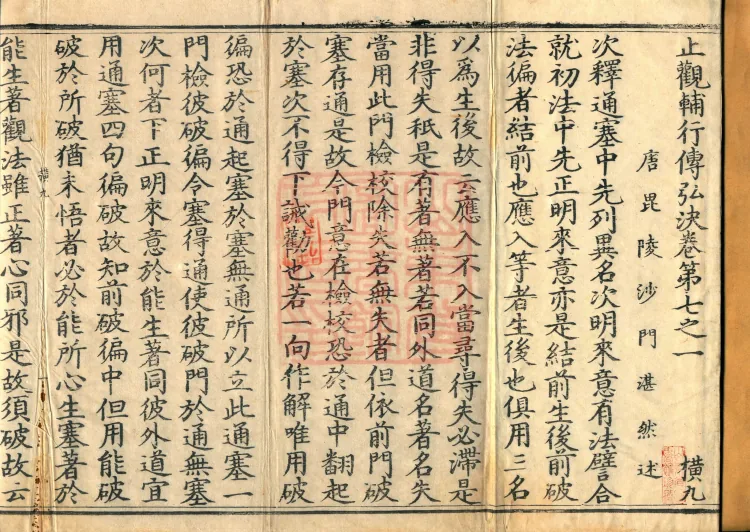 止觀輔行傳弘決卷第七之一 橫九
唐毘陵沙門湛然述
次釋通塞中先列異名次明來意有法譬合
就初法中先正明來意亦是結前生後前破
法徧者結前也應入等者生後也俱用三名
以為生後故云應入不入當尋得失必滯是
非得失秖是有著無著若同外道名著名失
當用此門檢校除失若無失者但依前門破
塞存通是故今門意在檢校恐於通中翻起
於塞次不得下誡勸也若一向作解唯用破
徧恐於通起塞於塞無通所以立此通塞一
門檢彼破徧令塞得通使彼破門於通無塞
次何者下正明來意於能生著同彼外道宜
用通塞四句徧破故知前破徧中但用能破
破於所破猶未悟者必於能所心生塞著於
橫九
能生著觀法雖正著心同邪是故須破故云